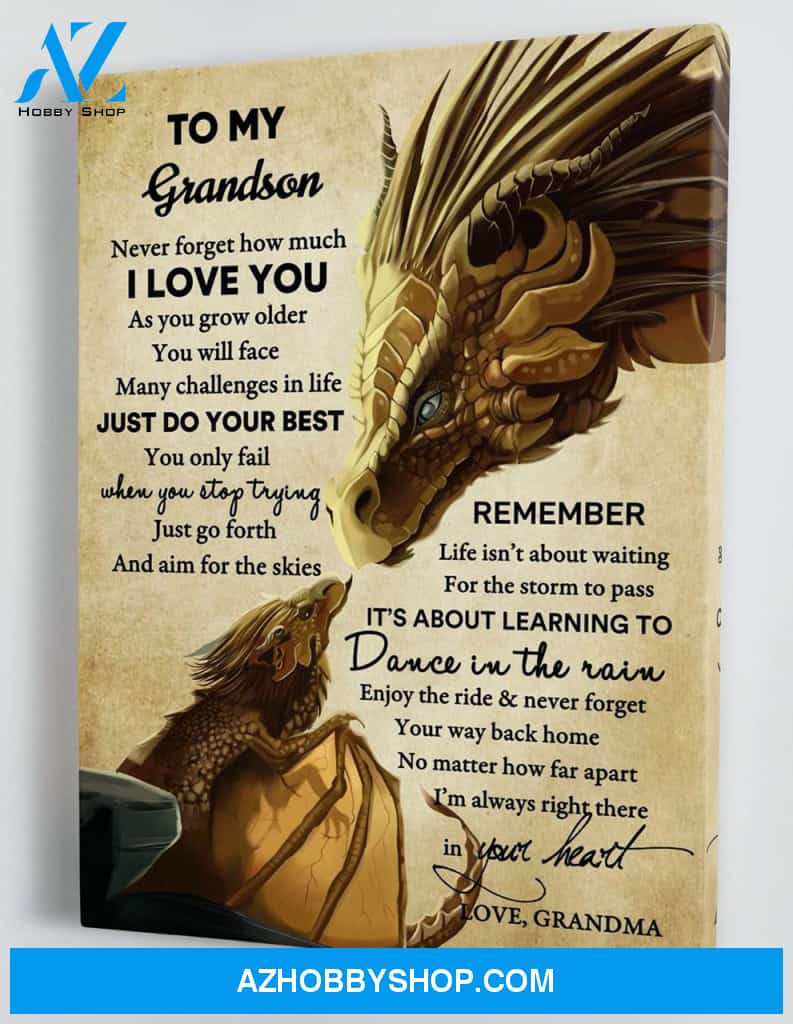 AZ
HOBBY SHOP
TO MY
Grandson
Never forget how much
I LOVE YOU
As you grow older
You will face
Many challenges in life
JUST DO YOUR BEST
You only fail
when you stop trying
Just go forth
And aim for the skies
REMEMBER
Life isn't about waiting
For the storm to pass
IT'S ABOUT LEARNING TO
Dance in the rain
Enjoy the ride & never forget
Your way back home
No matter how far apart
I'm always right there
in your heart
LOVE, GRANDMA
AZHOBBYSHOP.COM